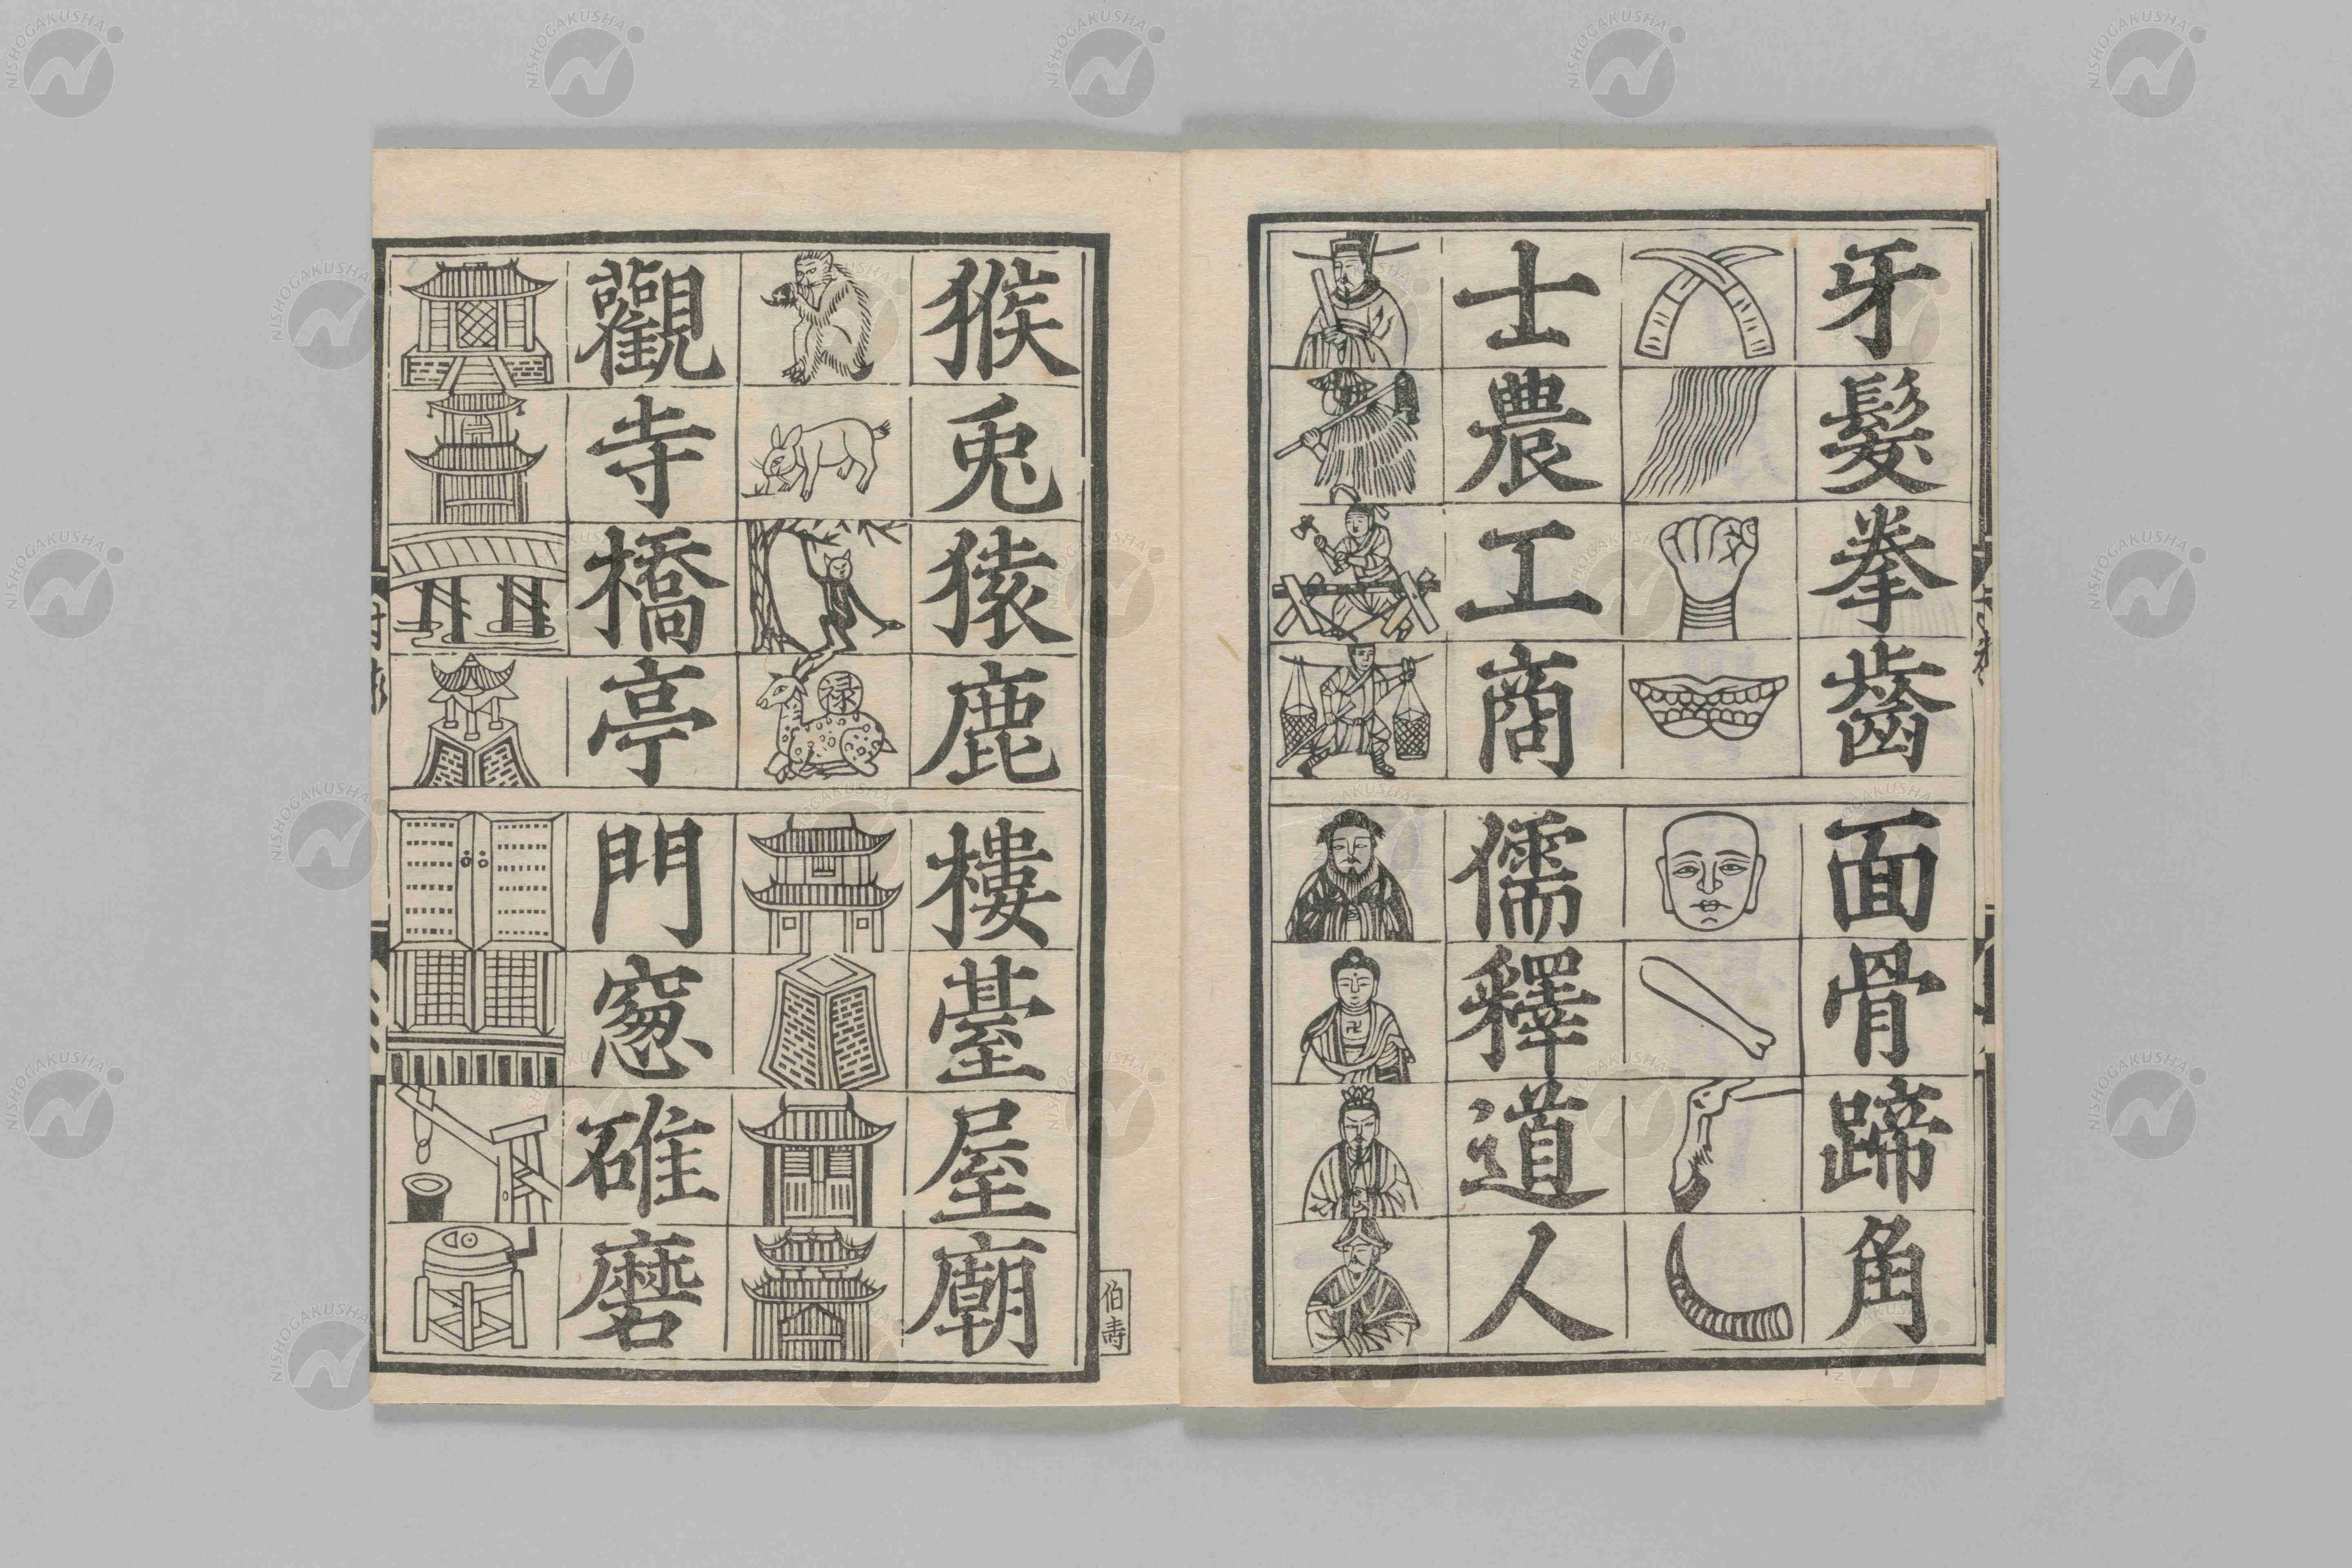 牙髮拳齒
面骨蹄角
士農工商
儒釋道人
猴兎猿鹿
禄
樓臺屋廟
觀寺橋亭
門窓碓磨
伯壽
NISHOGAKUSHA